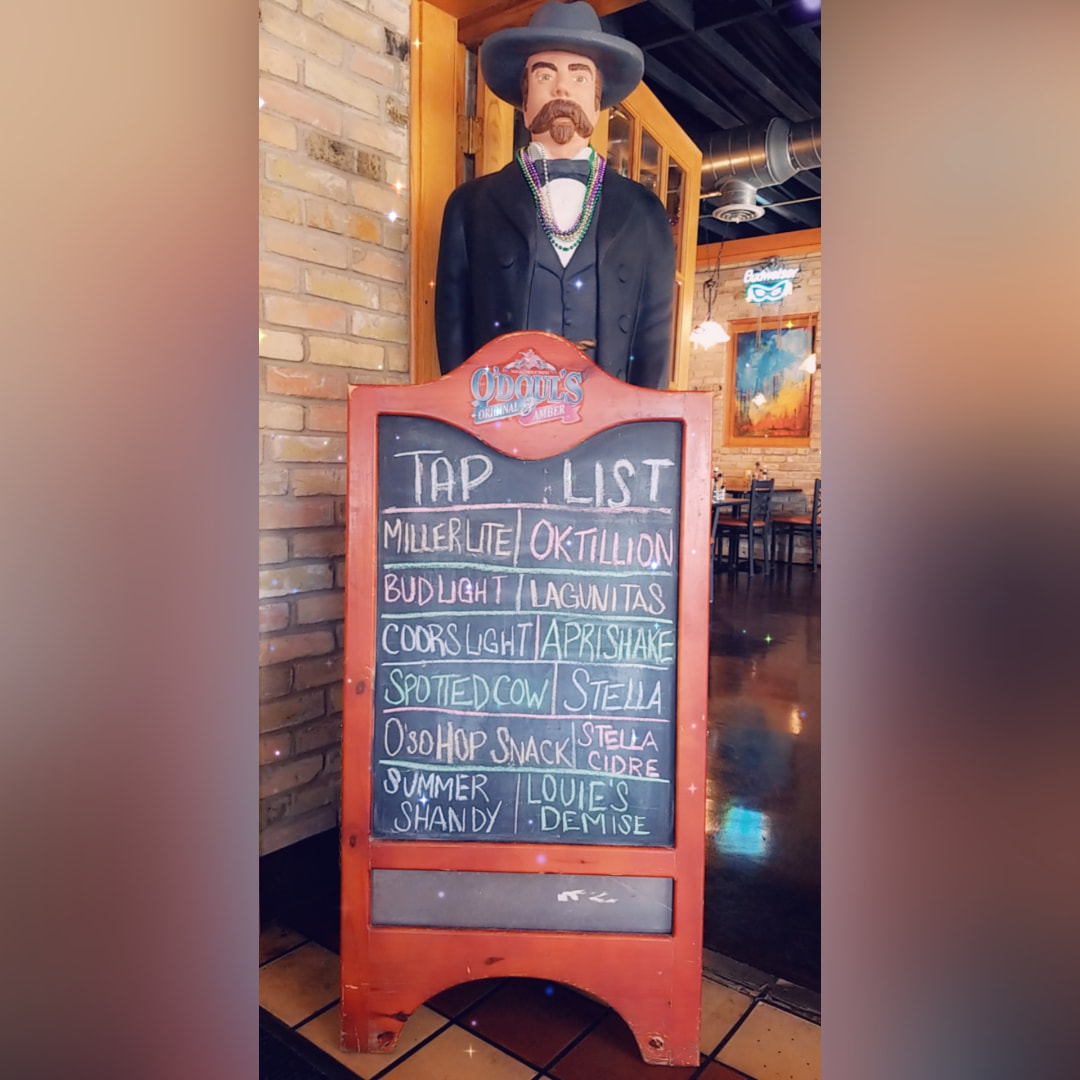 Budweiser
O'DOUL'S
ORIGINAL & AMBER
TAP LIST
MILLER LITE | OKTILLION
BUD LIGHT | LAGUNITAS
COORS LIGHT | APRISHAKE
SPOTTED COW | STELLA
O'SO HOP SNACK | STELLA CIDRE
SUMMER SHANDY | LOUIE'S DEMISE